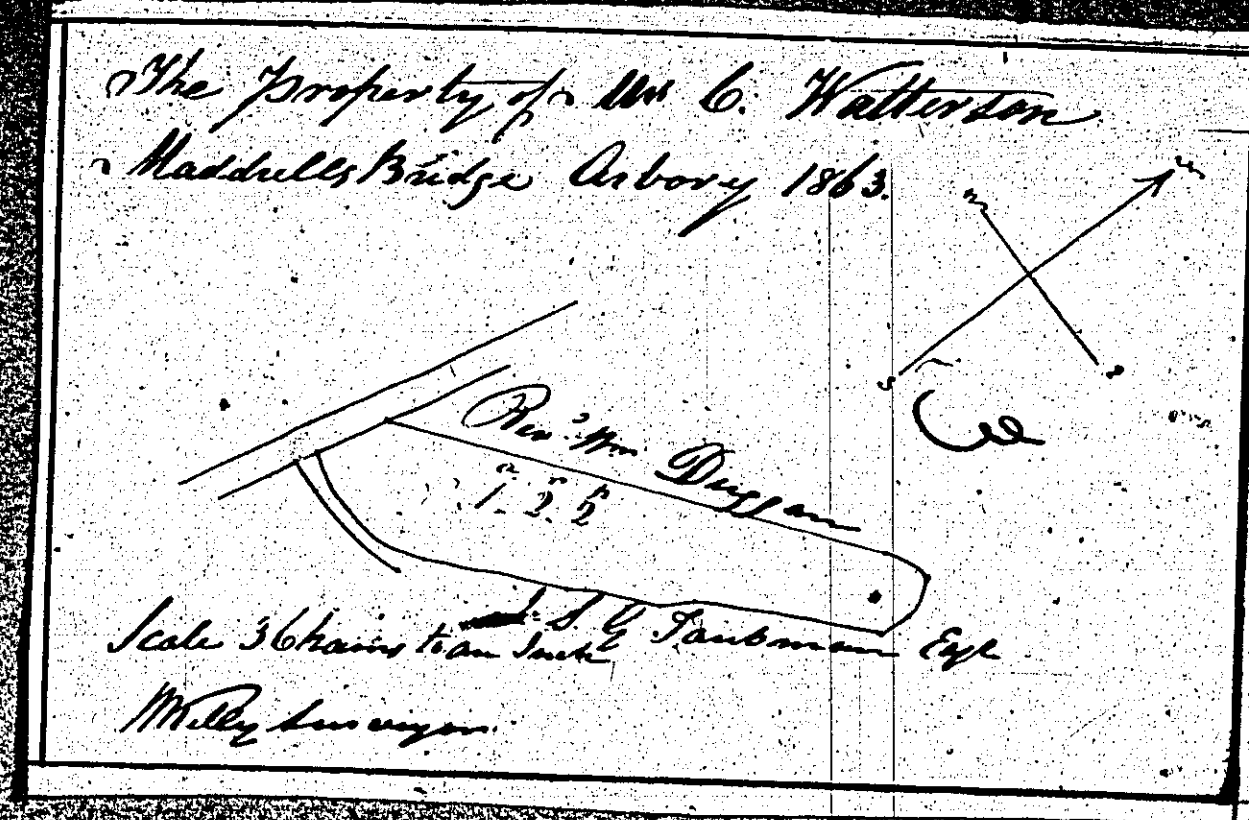 The Property of Mrs C. Watterson
Maddrells Bridge Arbory 1863.
Revd. Wm. Duggan
a r p
1 2 2
J. S. G. Taubman Esqr
Scale 3 Chains to an Inch
Surveyor.